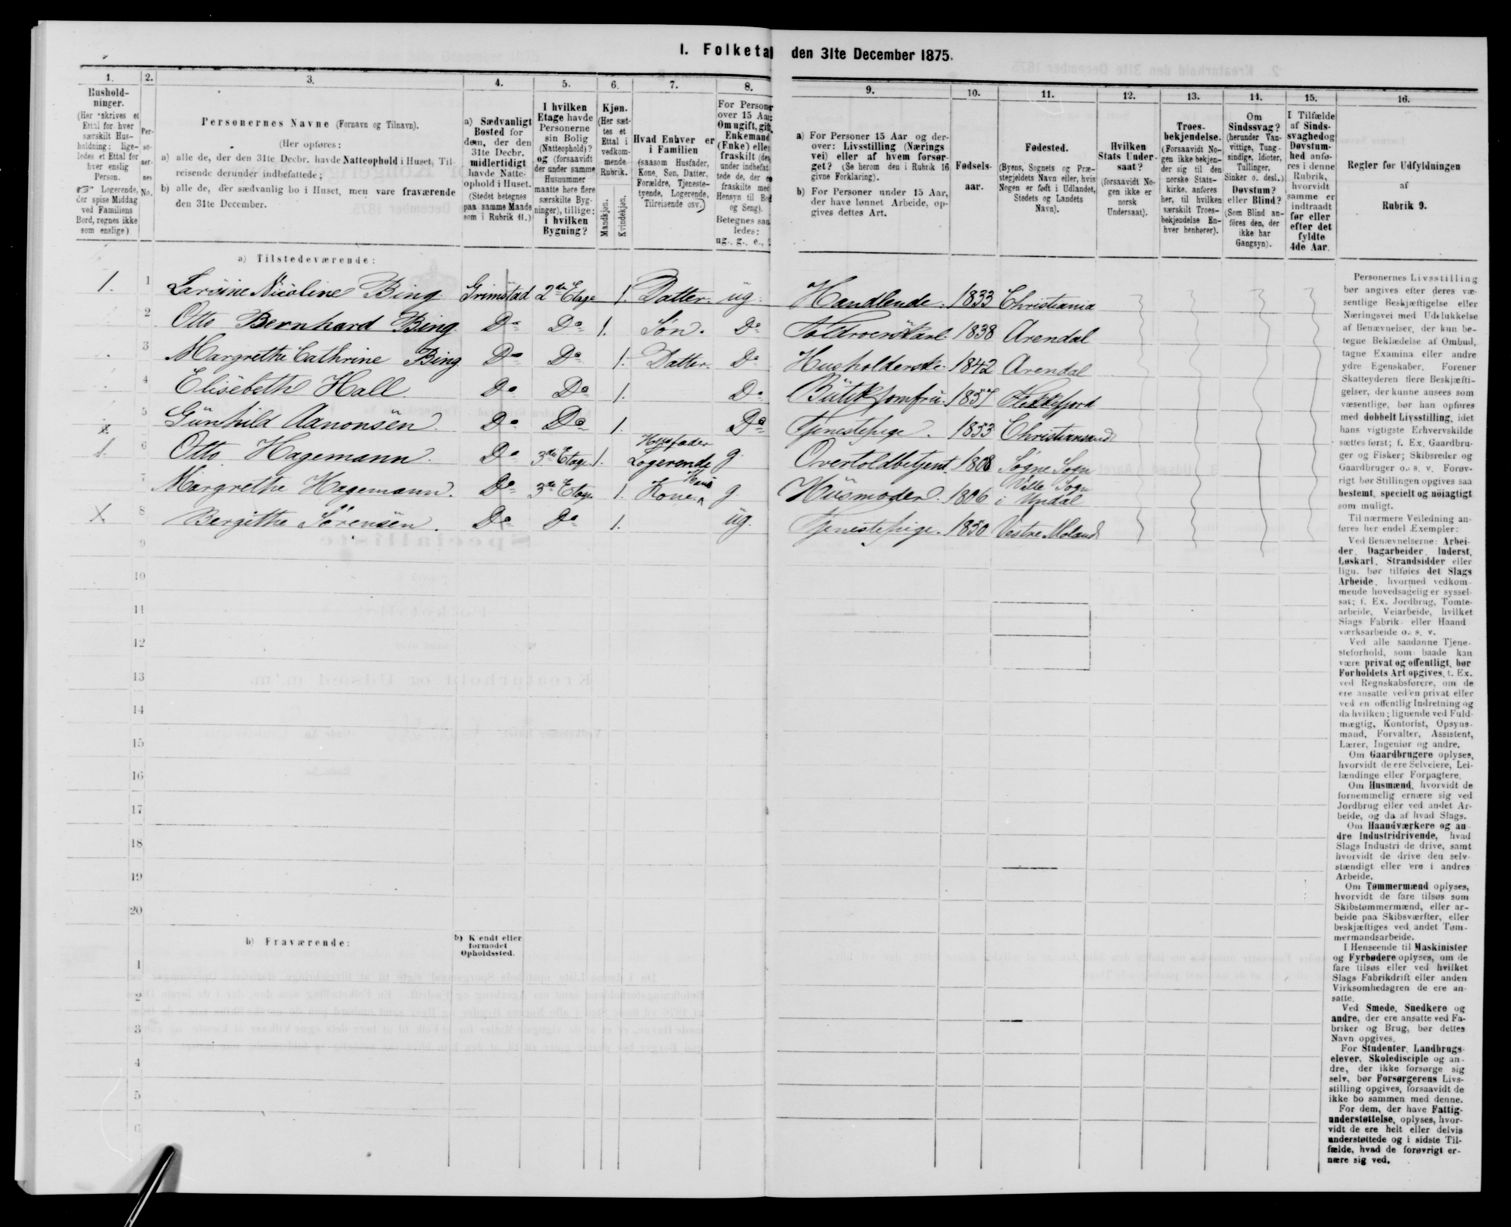 1. Folketal den 31te December 1875.
1.
2.
3.
4.
5.
6.
7.
8.
9.
10.
11.
12.
13.
14.
15.
16.
Hushold-
ninger.
(Her skrives et
Ettal for hver
særskilt Hus-
holdning; lige-
ledes et Ettal for
hver enslig
Person.
Logerende,
der spise Middag
ved Familiens
Bord, regnes ikke
som enslige)
Per-
so-
ner-
nes
No.
Personernes Navne (Fornavn og Tilnavn).
(Her opføres:
a) alle de, der den 31te Decbr. havde Natteophold i Huset, Til-
reisende derunder indbefattede;
b) alle de, der sædvanlig bo i Huset, men vare fraværende
den 31te December.
a) Sædvanligt
Bosted for
dem, der den
31te Decbr.
midlertidigt
havde Natte-
ophold i Huset.
(Stedet betegnes
paa samme Maade
som i Rubrik 11.)
I hvilken
Etage havde
Personerne
sin Bolig
(Natteophold)?
og (forsaavidt
der under samme
Husnummer
maatte høre flere
særskilte Byg-
ninger), tillige:
i hvilken
Bygning?
Kjøn.
(Her sæt-
tes et
Ettal i
vedkom-
mende
Rubrik.
Mandkjøn.
Kvindekjøn.
Hvad Enhver er
i Familien
(saasom Husfader,
Kone, Søn, Datter,
Forældre, Tjeneste-
tyende, Logerende,
Tilreisende osv.)
For Personer
over 15 Aar
Om ugift, gift,
Enkemand
(Enke) eller
fraskilt
Betegnes saa-
ledes:
ug., g., e., f.
a) For Personer 15 Aar og der-
over: Livsstilling (Nærings
vei) eller af hvem forsør-
get? (Se herom den i Rubrik 16
givne Forklaring).
b) For Personer under 15 Aar,
der have lønnet Arbeide, op-
gives dettes Art.
Fødsels-
aar.
Fødested.
(Byens, Sognets og Præ-
stegjeldets Navn eller, hvis
Nogen er født i Udlandet,
Stedets og Landets
Navn).
Hvilken
Stats Under-
saat?
(forsaavidt No-
gen ikke er
norsk
Undersaat).
Troes-
bekjendelse.
(Forsaavidt No-
gen ikke bekjen-
der sig til den
norske Stats-
kirke, anføres
her, til hvilken
særskilt Troes-
bekjendelse En-
hver henhører).
Om
Sindssvag?
(herunder Van-
vittige, Tung-
sindige, Idioter,
Tullinger,
Sinker o. desl.)
Døvstum?
eller Blind?
(Som Blind an-
føres den, der
ikke har
Gangsyn).
I Tilfælde
af Sinds-
svaghed og
Døvstum-
hed anfø-
res i denne
Rubrik,
hvorvidt
samme er
indtraadt
før eller
efter det
fyldte
4de Aar.
Regler for Udfyldningen
af
Rubrik 9.
a) Tilstedeværende:
1. 1 Lavine Nicoline Bing Grimstad 2den Etage 1. Datter. ug. Handlende. 1833 Christiania
2 Otto Bernhard Bing Do Do 1. Søn. Do Toldroerskarl 1838 Arendal
3 Margrethe Cathrine Bing Do Do 1. Datter. Do Husholderske 1842 Arendal
4 Elisebeth Hall Do Do 1. Do Butikjomfru 1857 Flekkefjord
x 5 Gunhild Aanonsen Do Do 1. Do Tjenestepige. 1853 Christiansand
1. 6 Otto Hagemann Do 3die Etage 1. Husfader Logerende g Overtoldbetjent 1808 Søgne Sogn
7 Margrethe Hagemann. Do 3die Etage 1. Hans Kone g Husmoder. 1806 Sogn i Undal
X 8 Bergithe Sørensen. Do Do 1. ug. Tjenestepige. 1850 Vestre Moland
9
10
11
12
13
14
15
16
17
18
19
20
b) Fraværende:
b) Kjendt eller
formodet
Opholdssted.
1
2
3
4
5
6
Personernes Livsstilling
bør angives efter deres væ-
sentlige Beskjæftigelse eller
Næringsvei med Udelukkelse
af Benævnelser, der kun be-
tegne Beklædelse af Ombud,
tagne Examina eller andre
ydre Egenskaber. Forener
Skatteyderen flere Beskjæfti-
gelser, der kunne ansees som
væsentlige, bør han opføres
med dobbelt Livsstilling, idet
hans vigtigste Erhvervskilde
sættes først; f. Ex. Gaardbru-
ger og Fisker; Skibsreder og
Gaardbruger o. s. v. Forøv-
rigt bør Stillingen opgives saa
bestemt, specielt og nøiagtigt
som muligt.
Til nærmere Veiledning an-
føres her endel Exempler:
Ved Benævnelserne: Arbei-
der, Dagarbeider, Inderst,
Løskarl, Strandsidder eller
lign. bør tilføies det Slags
Arbeide, hvormed vedkom-
mende hovedsagelig er syssel-
sat; f. Ex. Jordbrug, Tomte-
arbeide, Veiarbeide, hvilket
Slags Fabrik- eller Haand
værksarbeide o. s. v.
Ved alle saadanne Tjene-
steforhold, som baade kan
være privat og offentligt, bør
Forholdets Art opgives, f. Ex.
ved Regnskabsførere, om de
ere ansatte ved en privat eller
ved en offentlig Indretning og
da hvilken; lignende ved Fuld-
mægtig, Kontorist, Opsyns-
mand, Forvalter, Assistent,
Lærer, Ingeniør og andre.
Om Gaardbrugere oplyses,
hvorvidt de ere Selveiere, Lei-
lændinge eller Forpagtere.
Om Husmænd, hvorvidt de
fornemmelig ernære sig ved
Jordbrug eller ved andet Ar-
beide, og da af hvad Slags.
Om Haandværkere og an-
dre Industridrivende, hvad
Slags Industri de drive, samt
hvorvidt de drive den selv-
stændigt eller ere i andres
Arbeide.
Om Tømmermænd oplyses,
hvorvidt de fare tilsøs som
Skibstømmermænd, eller ar-
beide paa Skibsværfter, eller
beskjæftiges ved andet Tøm-
mermandsarbeide.
I Henseende til Maskinister
og Fyrbødere oplyses, om de
fare tilsøs eller ved hvilket
Slags Fabrikdrift eller anden
Virksomhedsgren de ere an-
satte.
Ved Smede, Snedkere og
andre, der ere ansatte ved Fa-
briker og Brug, bør dettes
Navn opgives.
For Studenter, Landbrugs-
elever, Skoledisciple og an-
dre, der ikke forsørge sig
selv, bør Forsørgerens Livs-
stilling opgives, forsaavidt de
ikke bo sammen med denne.
For dem, der have Fattig-
understøttelse, oplyses, hvor-
vidt de ere helt eller delvis
understøttede og i sidste Til-
fælde, hvad de forøvrigt er-
nære sig ved.